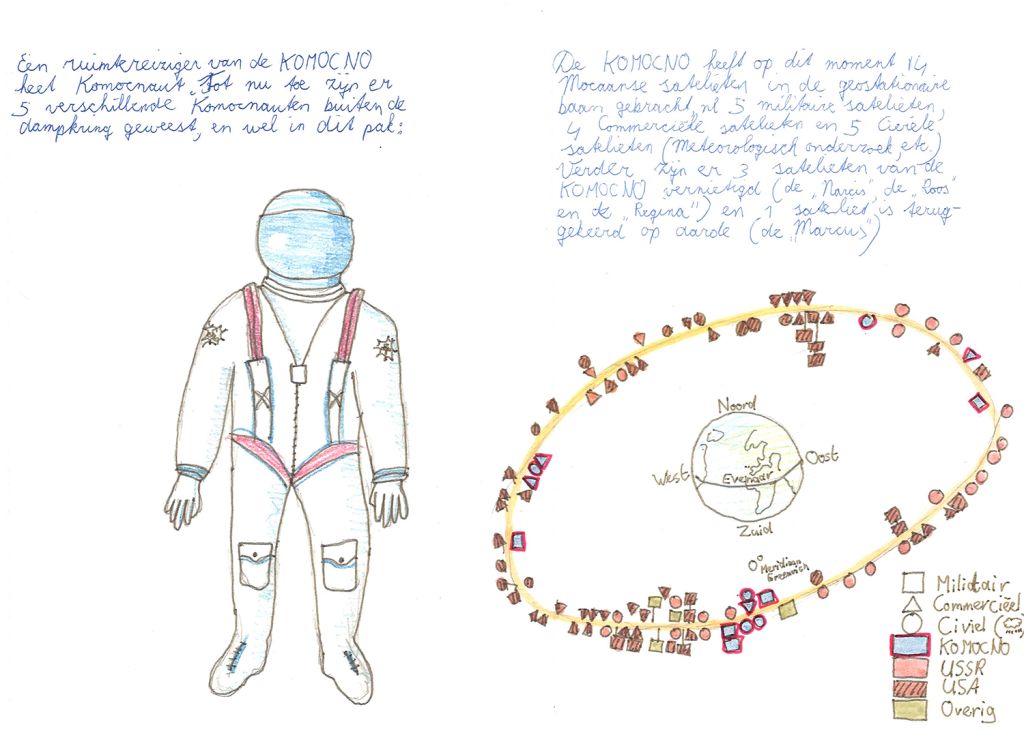 Een ruimtereiziger van de KOMOCNO
heet Komocnaut. Tot nu toe zijn er
5 verschillende Komocnauten buiten de
dampkring geweest, en wel in dit pak:
De KOMOCNO heeft op dit moment 14
Mocaanse satelieten in de geostationaire
baan gebracht, nl 5 militaire satelieten,
4 Commerciële satelieten en 5 Civiele
satelieten (Meteorologisch onderzoek, etc.)
Verder zijn er 3 satelieten van de
KOMOCNO vernietigd (de „Narcis", de „Roos"
en de „Regina") en 1 sateliet is terug-
gekeerd op aarde (de „Marcus")
Noord
West
Oost
Evenaar
Zuid
0° Meridiaan
Greenwich
Militair
Commerciëel
Civiel
KOMOCNO
USSR
USA
Overig